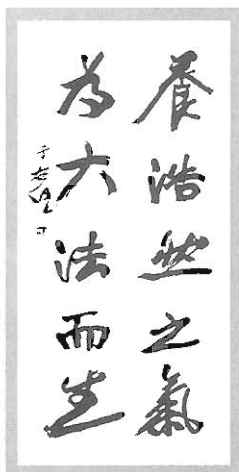 養浩然之氣
為大法而生
于右任